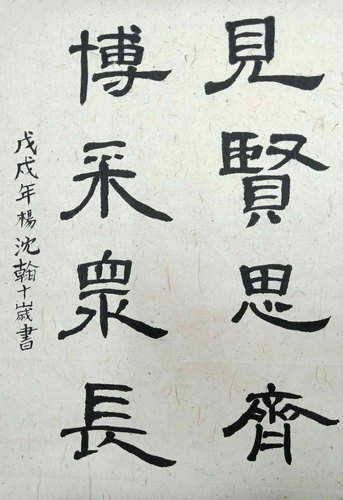 見賢思齊
博采眾長
戊戌年楊沈翰十歲書